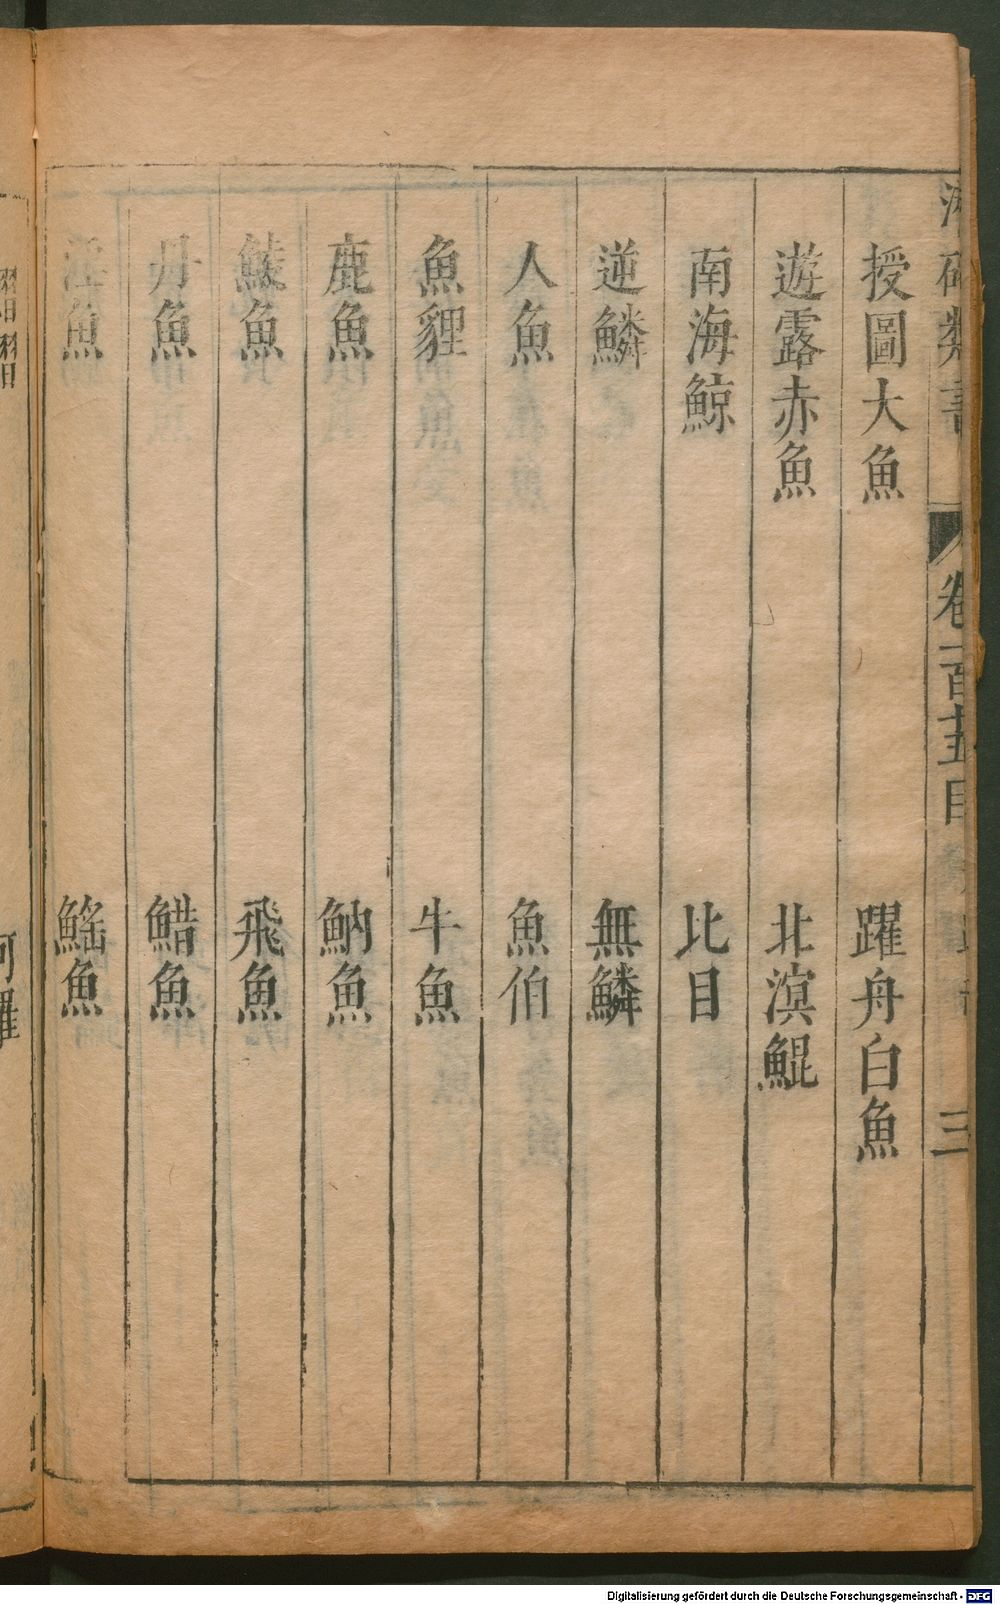 授圖大魚 躍舟白魚
遊露赤魚 北溟鯤
南海鯨 比目
逆鱗 無鱗
人魚 魚伯
魚貍 牛魚
鹿魚 魶魚
鯪魚 飛魚
丹魚 䱜魚
魚 鰩魚
卷一百十五目
三
Digitalisierung gefördert durch die Deutsche Forschungsgemeinschaft - DFG